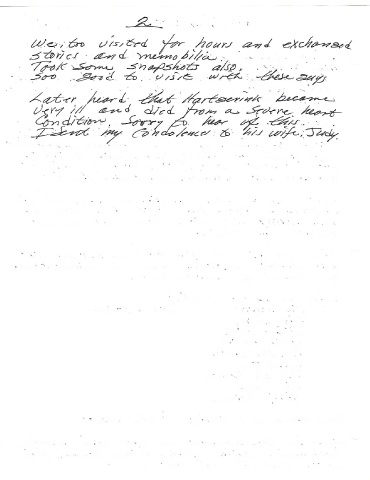 2
We, too visited for hours and exchanged
stories and memobilia.
Took some snapshots also.
Soo good to visit with these guys
Later heard that Hartserink became
very ill and died from a severe heart
Condition. Sorry to hear of this.
I send my Condolences to his wife, Judy.